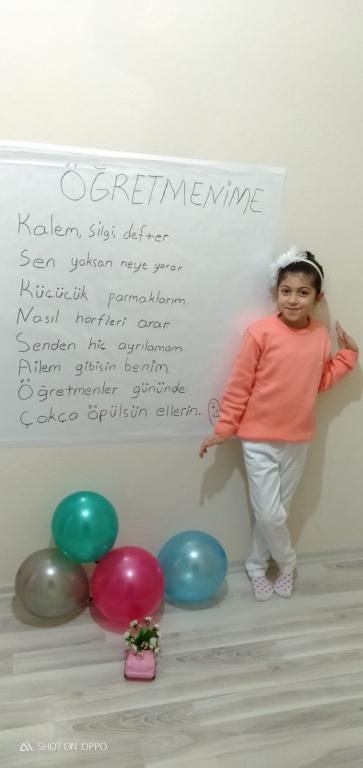 ÖĞRETMENİME
Kalem, silgi, defter
Sen yoksan neye yarar
Küçücük parmaklarım
Nasıl harfleri arar
Senden hiç ayrılamam
Ailem gibisin benim
Öğretmenler gününde
Çokça öpülsün ellerin..
SHOT ON OPPO